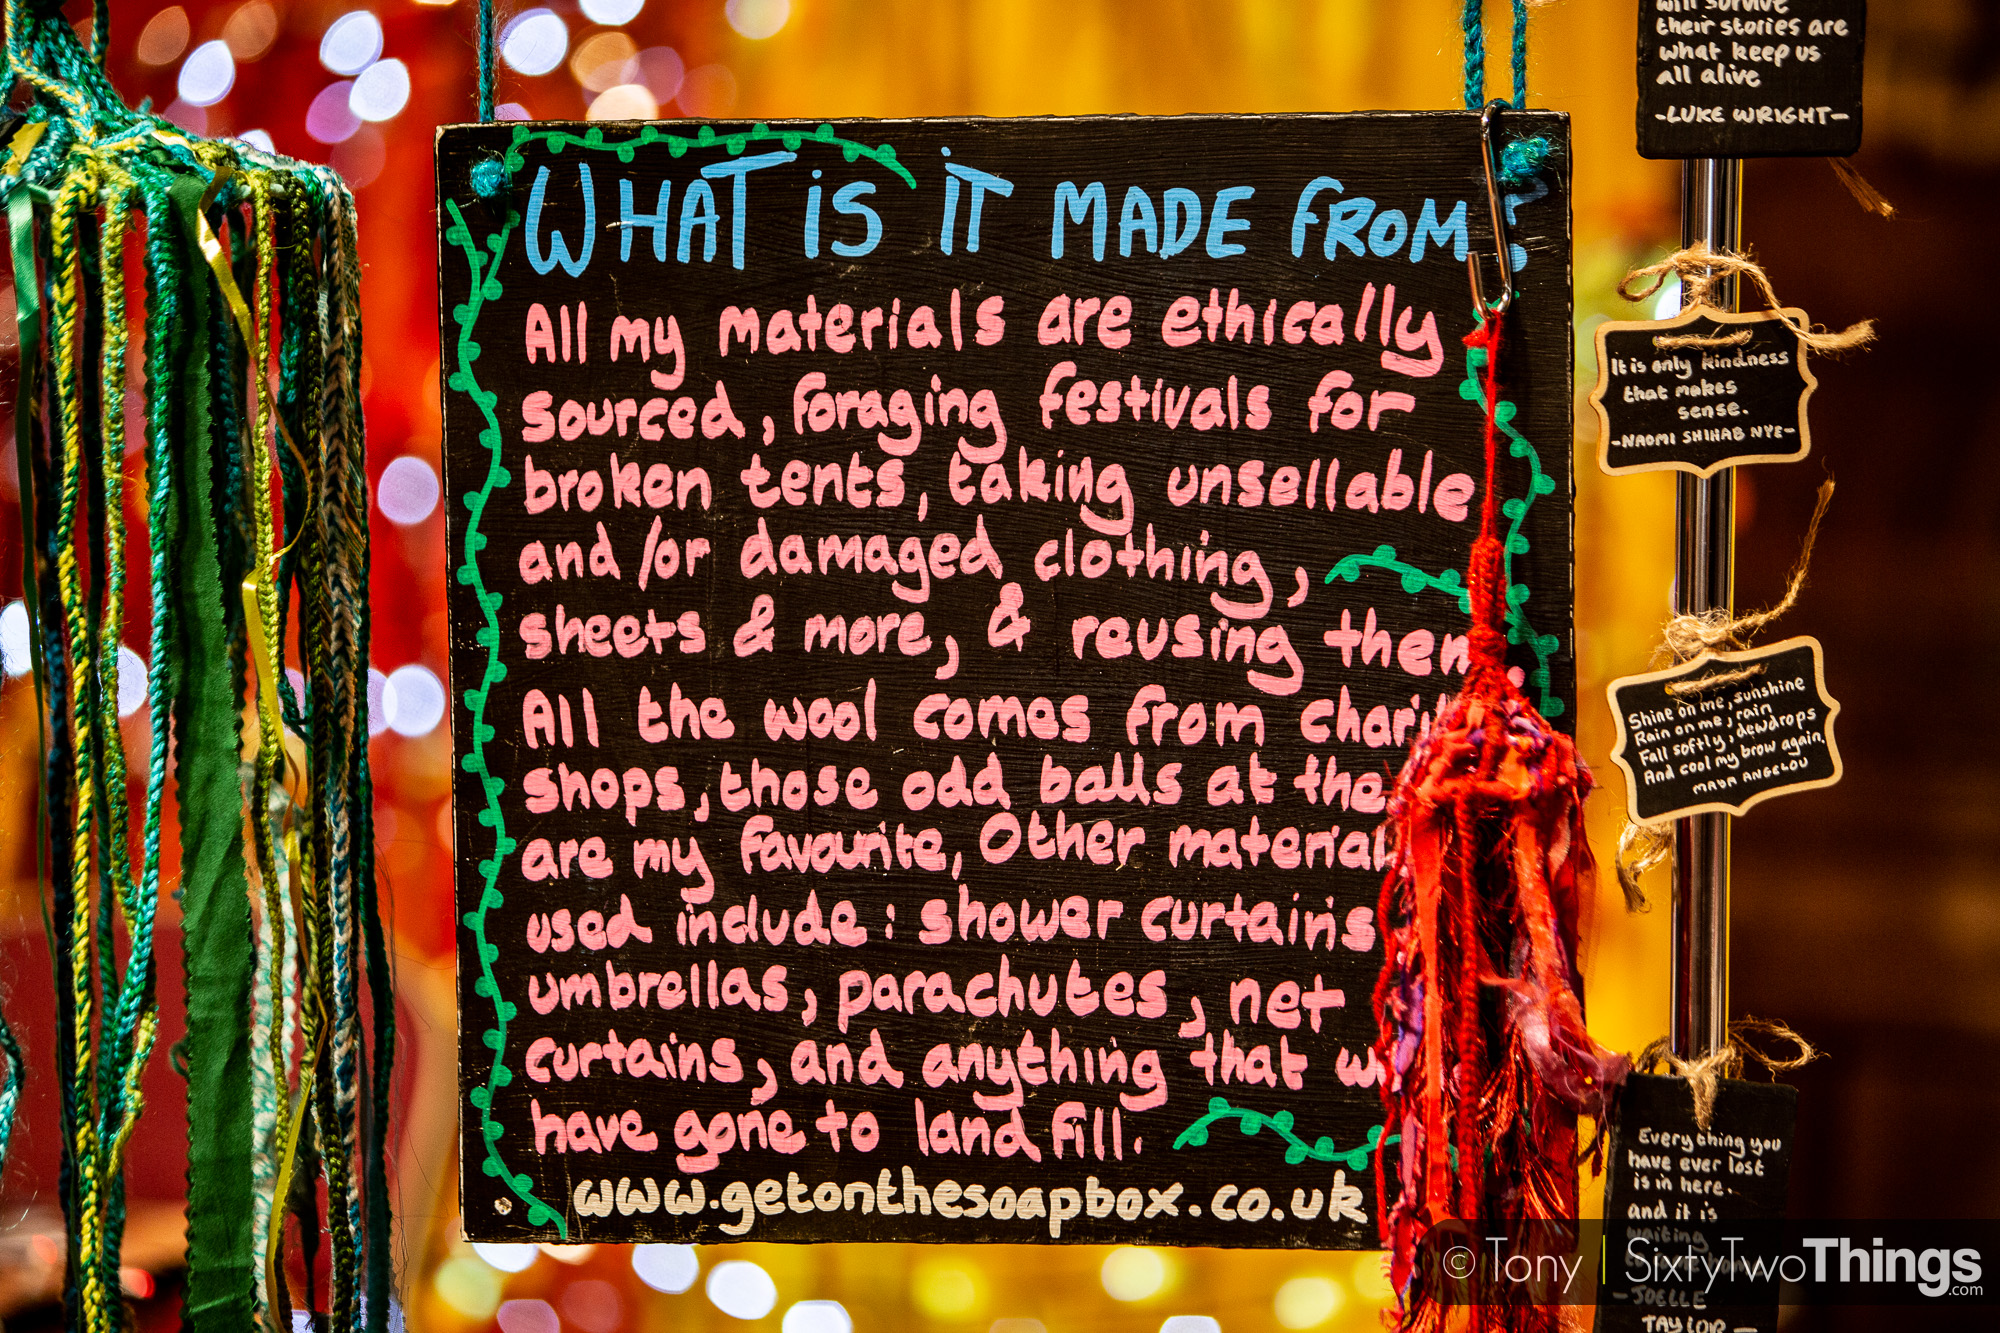 WHAT iS iT MADE FROM?
All my materials are ethically
sourced, foraging festivals for
broken tents, taking unsellable
and/or damaged clothing,
sheets & more, & reusing them.
All the wool comes from
shops, those odd balls at the
are my favourite, Other material
used include: shower curtains
umbrellas, parachutes, net
curtains, and anything that
have gone to land fill.
www.getonthesoapbox.co.uk
will survive
their stories are
what keep us
all alive
-LUKE WRIGHT-
It is only kindness
that makes
sense.
-NAOMI SHIHAB NYE-
Shine on me, sunshine
Rain on me, rain
Fall softly, dewdrops
And cool my brow again.
MAYA ANGELOU
Everything you
have ever lost
is in here.
and it is
waiting
-JOELLE
TAYLOR-
© Tony | SixtyTwoThings.com